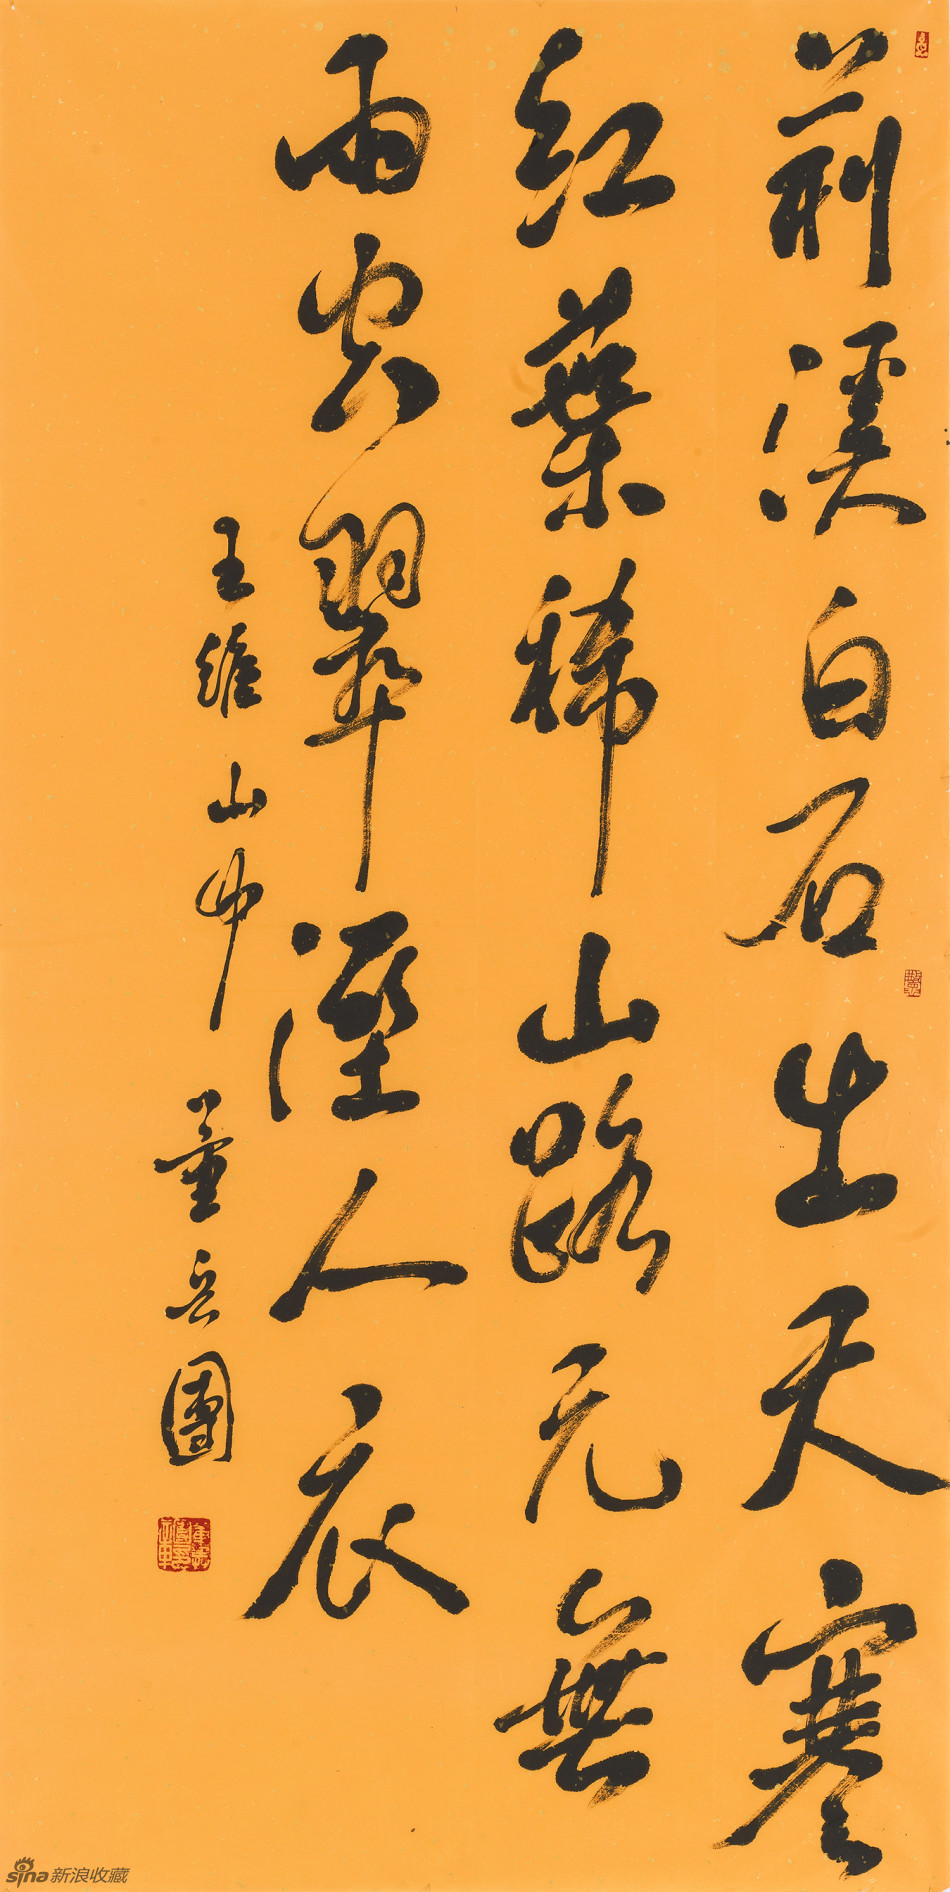 荆溪白石出天寒
紅葉稀山路元無
雨空翠溼人衣
王維山中
董岳團
sina新浪收藏